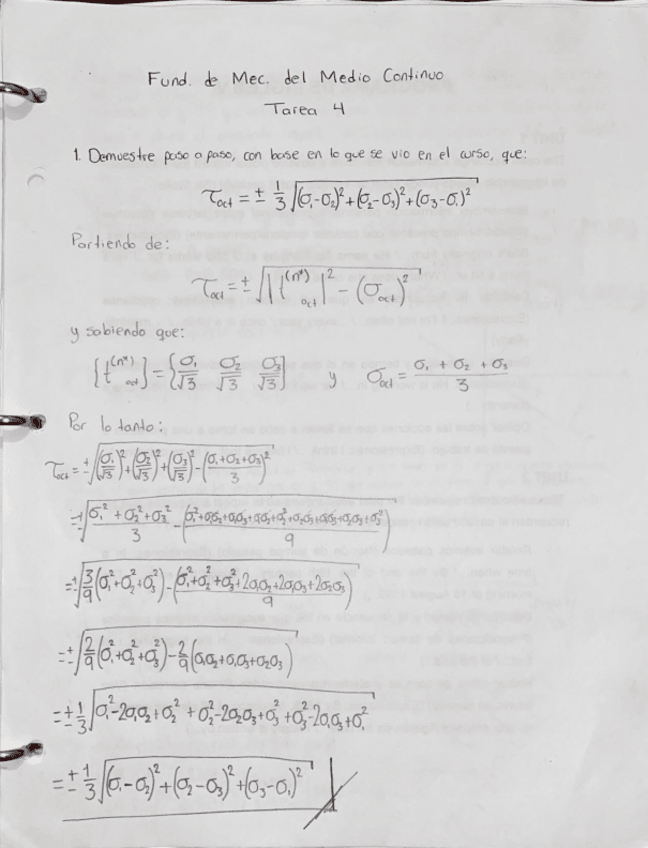 Fund. de Mec. del Medio Continuo
Tarea 4
1. Demuestre paso a paso, con base en lo que se vio en el curso, que:
τoct = ± 1/3 √((σ₁-σ₂)²+(σ₂-σ₃)²+(σ₃-σ₁)²)
Partiendo de:
τoct = ± √(|t^(n*)oct|² - (σoct)²)
y sabiendo que:
{t^(n*)oct} = {σ₁/√3 σ₂/√3 σ₃/√3} y σoct = (σ₁ + σ₂ + σ₃)/3
Por lo tanto:
τoct = ± √((σ₁/√3)²+(σ₂/√3)²+(σ₃/√3)²-((σ₁+σ₂+σ₃)/3)²)
= ± √((σ₁²+σ₂²+σ₃²)/3 - (σ₁²+σ₁σ₂+σ₁σ₃+σ₁σ₂+σ₂²+σ₂σ₃+σ₁σ₃+σ₂σ₃+σ₃²)/9)
= ± √(3/9(σ₁²+σ₂²+σ₃²)-(σ₁²+σ₂²+σ₃²+2σ₁σ₂+2σ₁σ₃+2σ₂σ₃)/9)
= ± √(2/9(σ₁²+σ₂²+σ₃²)-2/9(σ₁σ₂+σ₁σ₃+σ₂σ₃))
= ± 1/3 √(σ₁²-2σ₁σ₂+σ₂²+σ₂²-2σ₂σ₃+σ₃²+σ₃²-2σ₁σ₃+σ₁²)
= ± 1/3 √((σ₁-σ₂)²+(σ₂-σ₃)²+(σ₃-σ₁)²)